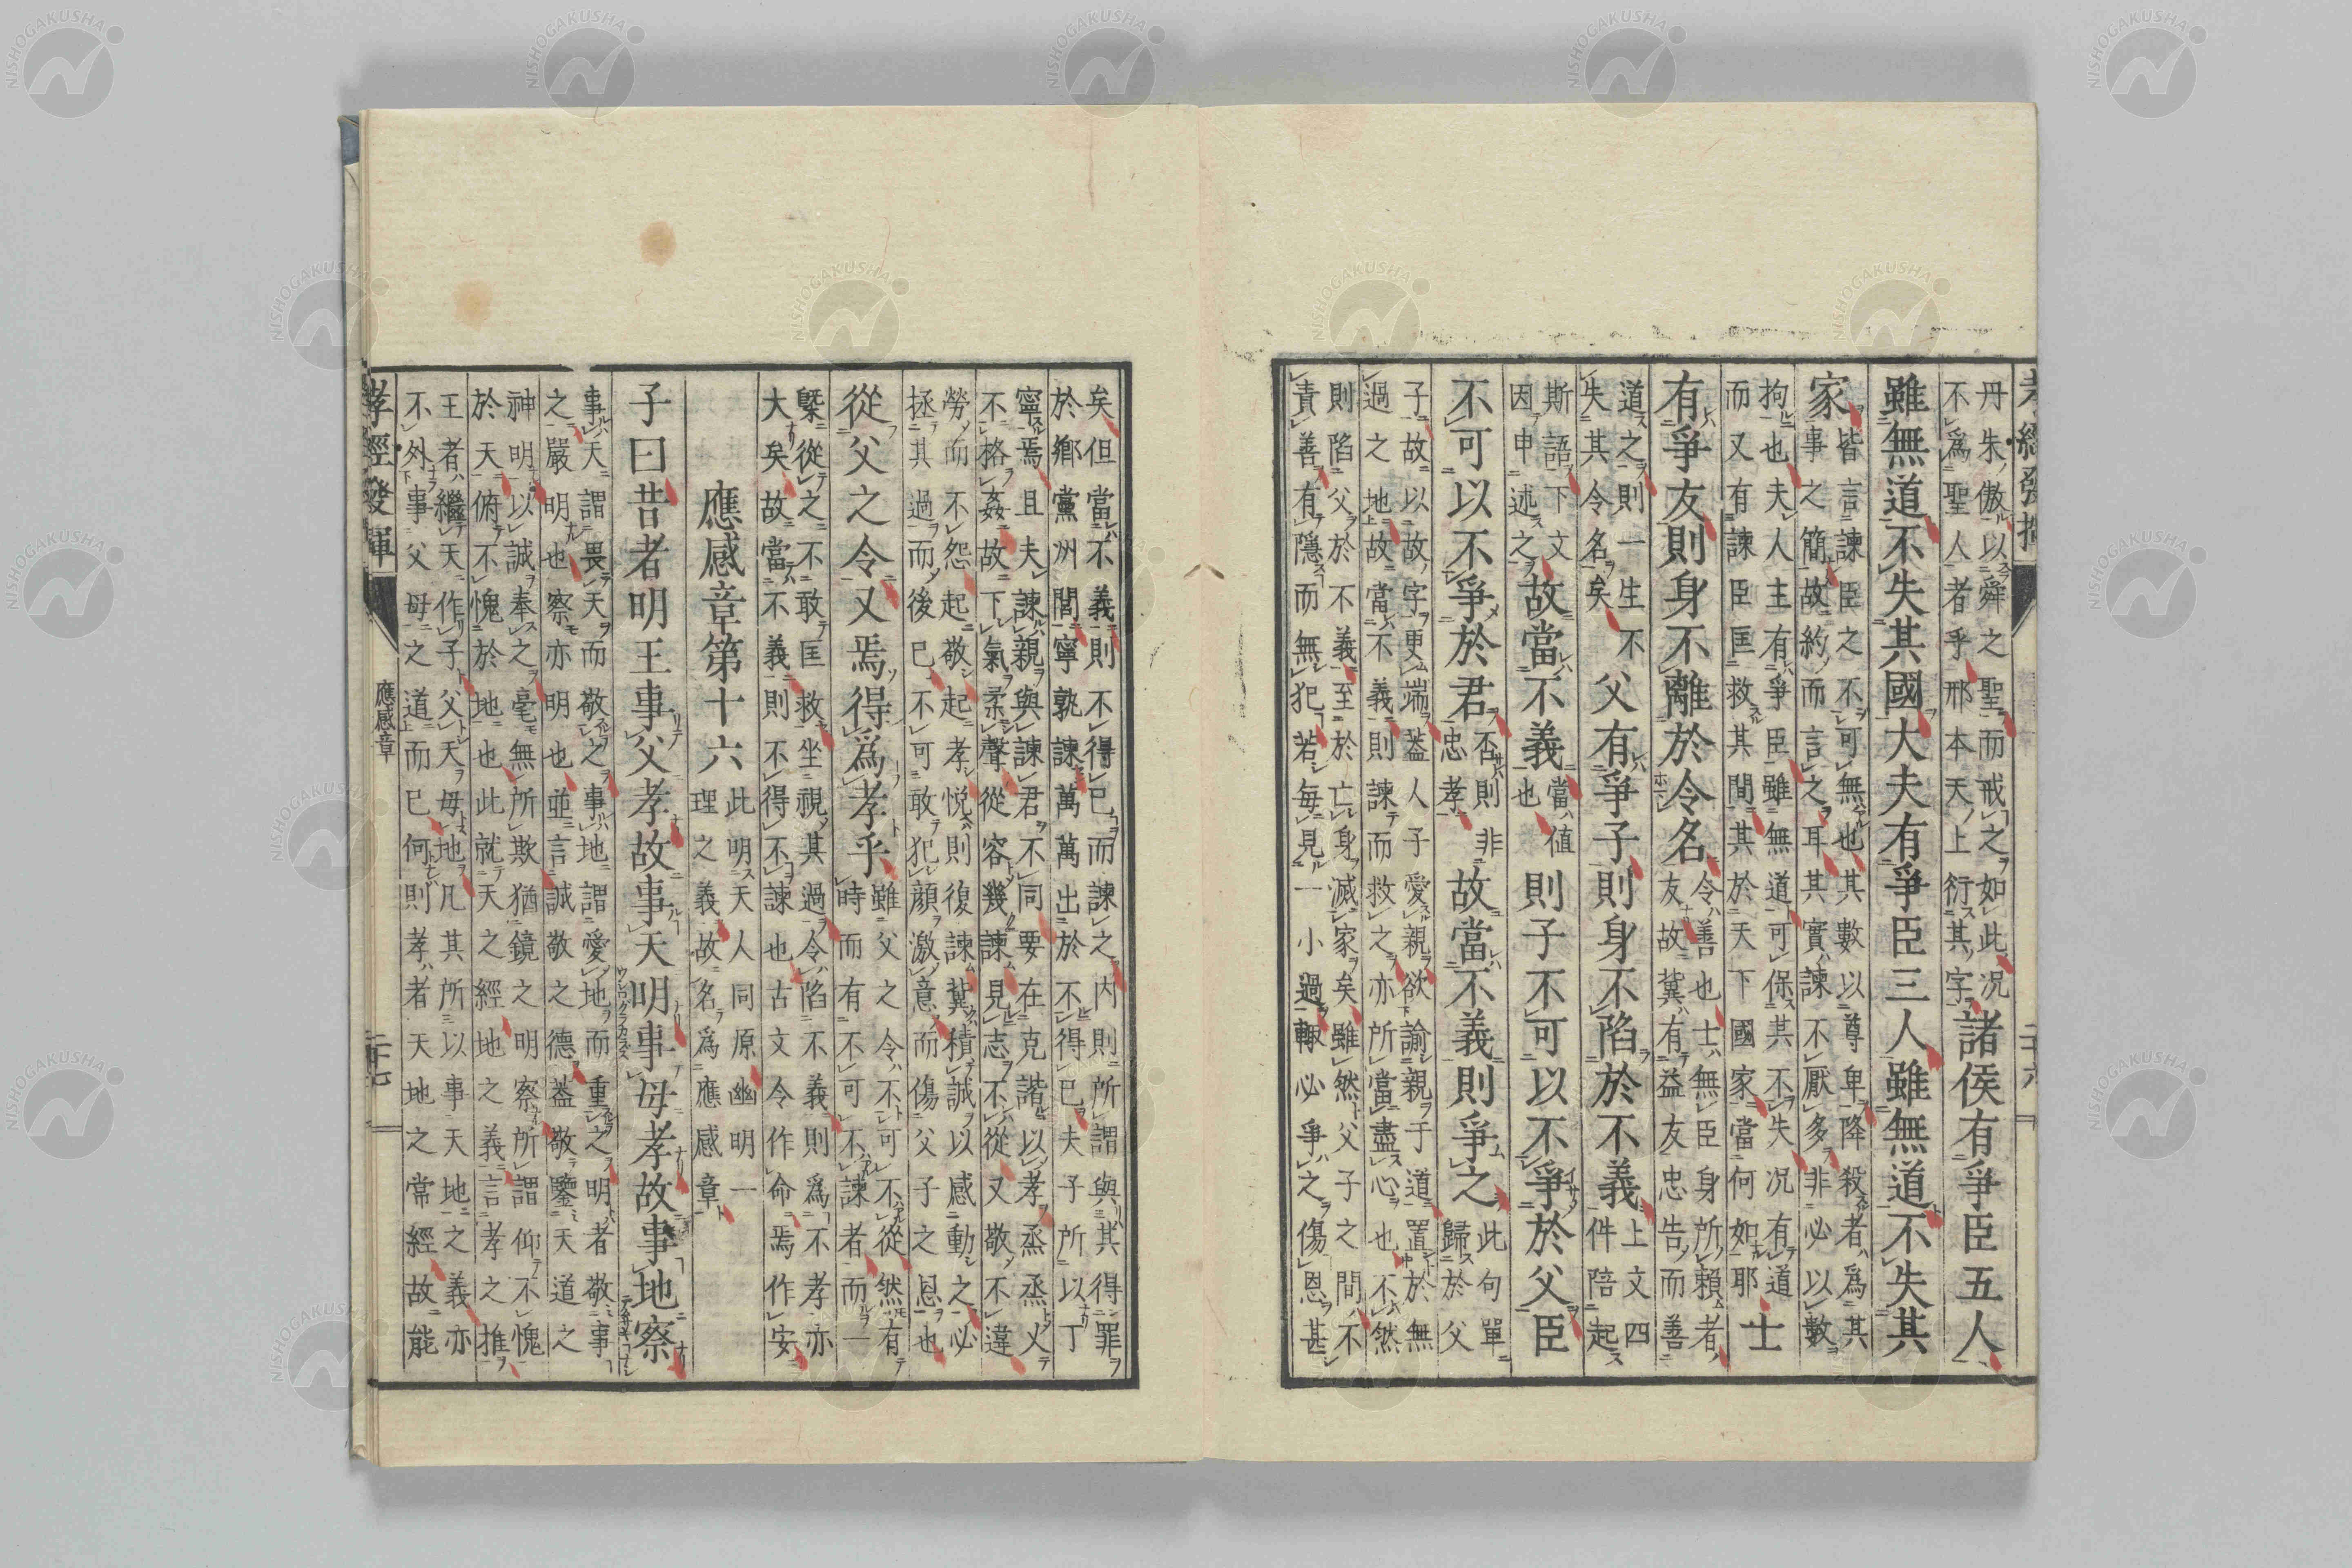 丹朱傲以舜之聖而戒之如此况
不爲聖人者乎邢本天上衍其字
諸侯有爭臣五人
雖無道不失其國大夫有爭臣三人雖無道不失其
家
皆言諫臣之不可無也其數以尊卑降殺者爲其
事之簡故約而言之耳其實諫不厭多非必以數
拘也夫人主有爭臣雖無道可保其不失况有道
而又有諫臣匡救其間其於天下國家當何如耶
士
有爭友則身不離於令名
令善也士無臣身所賴者
友故冀有益友忠告而善
道之則一生不
失其令名矣
父有爭子則身不陷於不義
上文四
件陪起
斯語下文
因申述之
故當不義
當値
也
則子不可以不爭於父臣
不可以不爭於君
否則非
忠孝
故當不義則爭之
此句單
歸於父
子故以故字更端葢人子愛親欲諭親于道置於無
過之地故當不義則諫而救之亦所當盡心也不然
則陷父於不義至於亡身滅家矣雖然父子之間不
責善有隱而無犯若每見一小過輙必爭之傷恩甚
矣但當不義則不得已而諫之内則所謂與其得罪
於鄉黨州閭寧孰諫萬萬出於不得已夫子所以丁
寧焉且夫諫親與諫君不同要在克諧以孝烝烝乂
不格姦故下氣柔聲從容幾諫見志不從又敬不違
勞而不怨起敬起孝悅則復諫冀積誠以感動之必
拯其過而後已不可敢犯顔激意而傷父子之恩也
從父之令又焉得爲孝乎
雖父之令不可不從然有
時而有不可不諫者而一
槩從之不敢匡救坐視其過令陷不義則爲不孝亦
大矣故當不義則不得不諫也古文令作命焉作安
應感章第十六
此明天人同原幽明一
理之義故名爲應感章
子曰昔者明王事父孝故事天明事母孝故事地察
事天謂畏天而敬之事地謂愛地而重之明者敬事
之嚴明也察亦明也並言誠敬之德葢敬鑒天道之
神明以誠奉之毫無所欺猶鏡之明察所謂仰不愧
於天俯不愧於地也此就天之經地之義言孝之推
王者繼天作子父天母地凡其所以事天地之義亦
不外事父母之道而已何則孝者天地之常經故能
孝經發揮
應感章
二十七
NISHOGAKUSHA